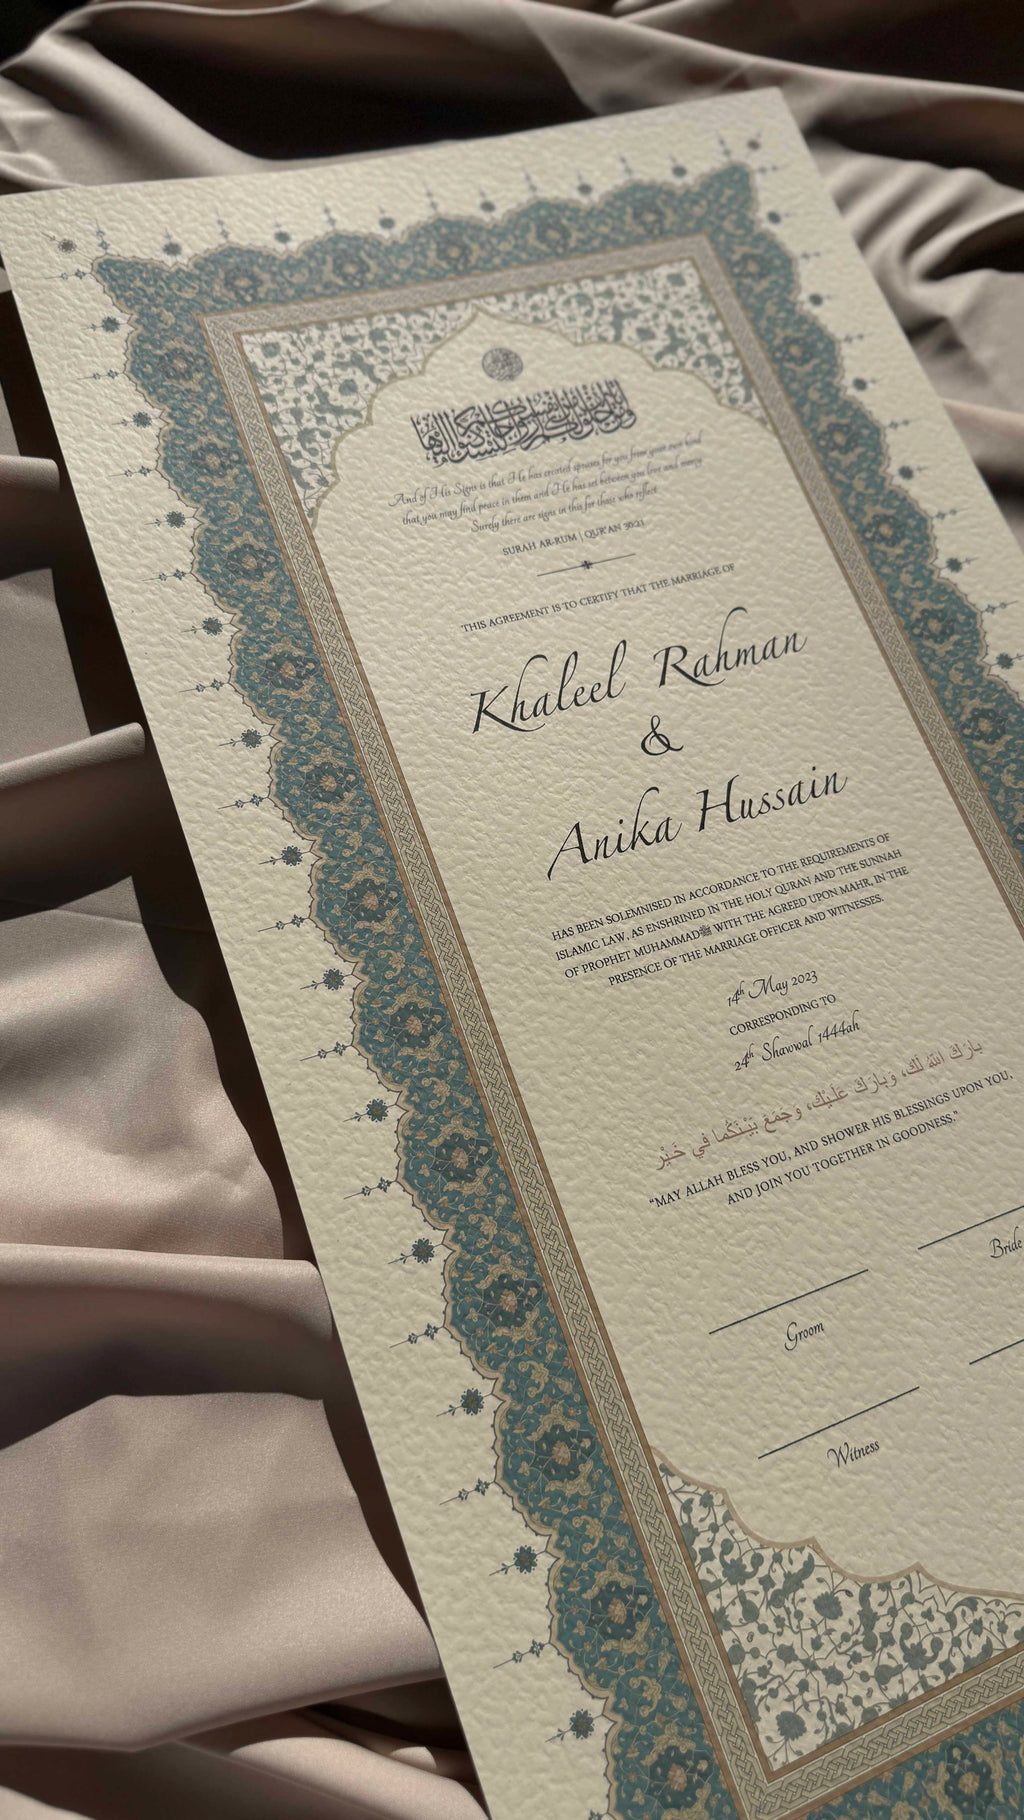 And of His Signs is that He has created spouses for you from your own kind
that you may find peace in them and He has set between you love and mercy
Surely there are signs in this for those who reflect
SURAH AR-RUM | QUR'AN 30:21
THIS AGREEMENT IS TO CERTIFY THAT THE MARRIAGE OF
Khaleel Rahman
&
Anika Hussain
HAS BEEN SOLEMNISED IN ACCORDANCE TO THE REQUIREMENTS OF
ISLAMIC LAW, AS ENSHRINED IN THE HOLY QURAN AND THE SUNNAH
OF PROPHET MUHAMMADﷺ WITH THE AGREED UPON MAHR, IN THE
PRESENCE OF THE MARRIAGE OFFICER AND WITNESSES.
14th May 2023
CORRESPONDING TO
24th Shawwal 1444ah
بارَكَ اللهُ لَك، وَبارَكَ عَلَيْك، وجَمَعَ بَيْنَكُما في خَيْر
"MAY ALLAH BLESS YOU, AND SHOWER HIS BLESSINGS UPON YOU,
AND JOIN YOU TOGETHER IN GOODNESS."
Bride
Groom
Witness